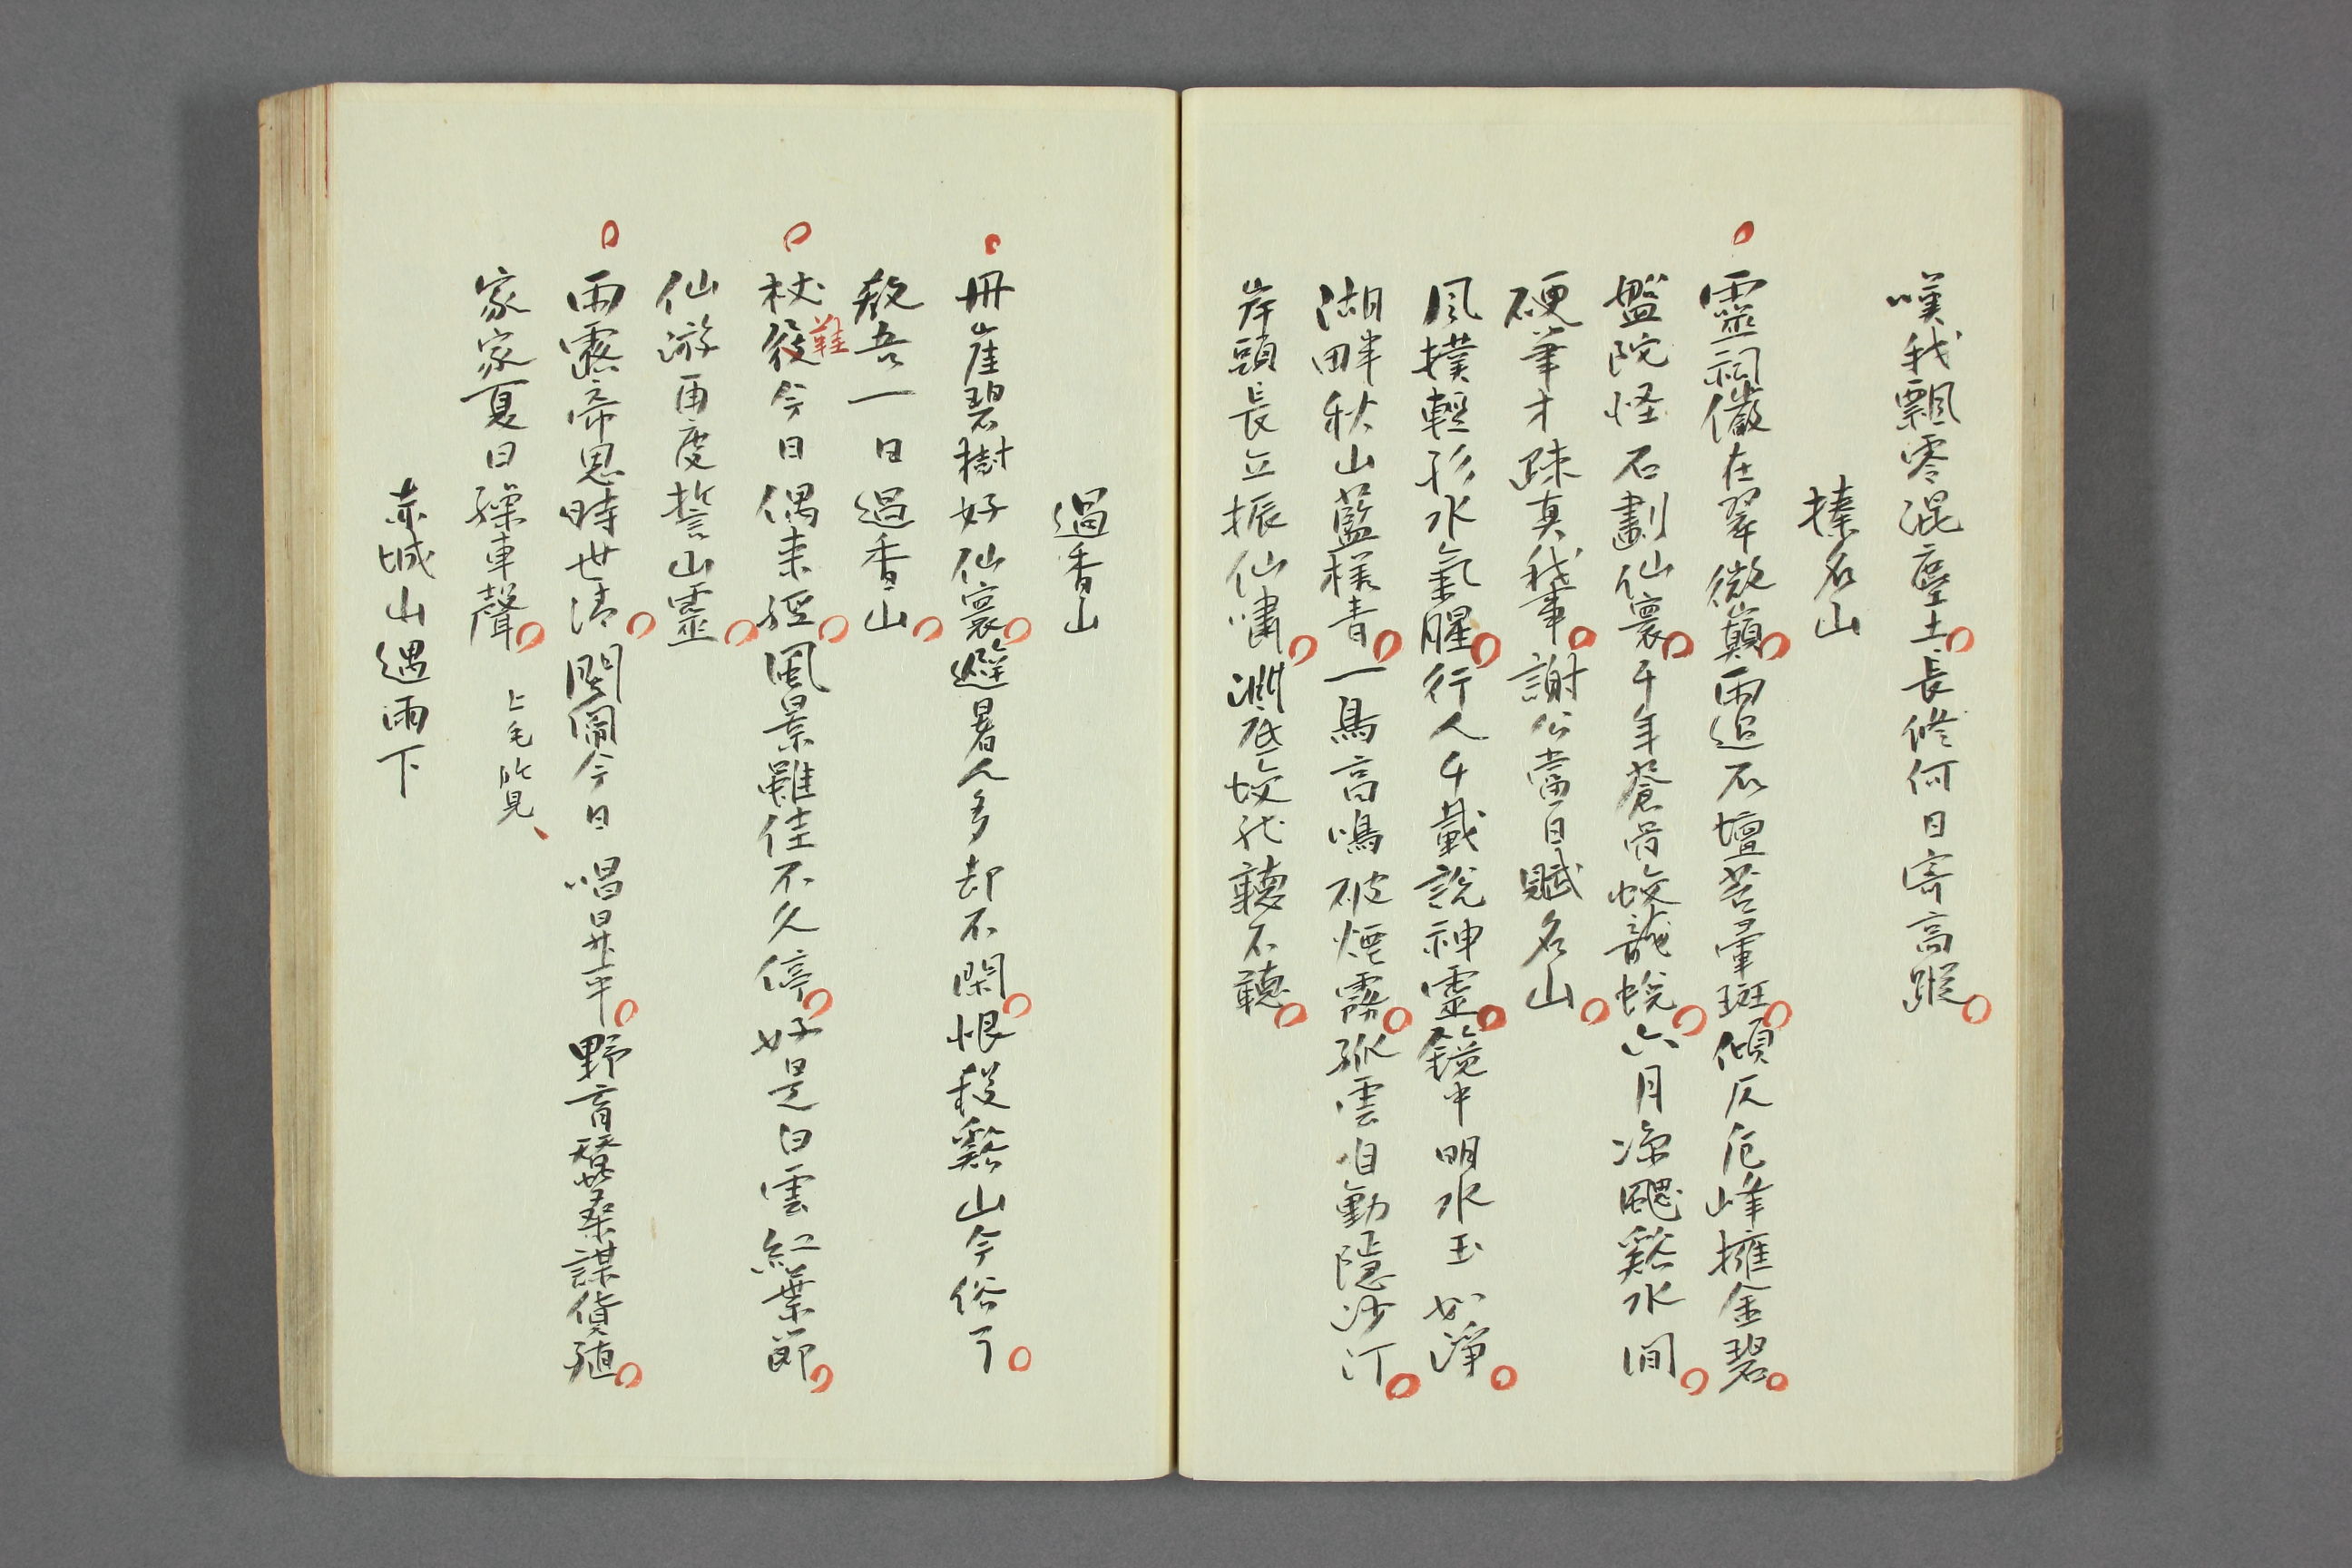 嘆我飄零混塵土長修何日寄高蹤
榛名山
靈祠儼在翠微巔雨過石壇苔暈斑傾仄危峰擁金碧
盤陀怪石劃仙寰千年蒼骨蛟龍蛻六月凉颸谿水間
硬筆才疎真我事謝公當日賦名山
風撲輕衫水氣腥行人千載説神靈鏡中明水玉如淨
湖畔秋山藍樣青一鳥高鳴破煙霧孤雲自動隱沙汀
岸頭長立振仙嘯淵底蛟龍聽不聽
過香山
丹崖碧樹好仙寰避暑人多却不閑恨殺谿山今俗了
教吾一日過香山
杖鞋今日偶来經風景雖佳不久停好是白雲紅葉節
仙游再度誓山靈
雨露帝恩時世清閭閻今日唱昇平野育蠶桑謀貨殖
家家夏日繰車聲 上毛所見
赤城山遇雨下